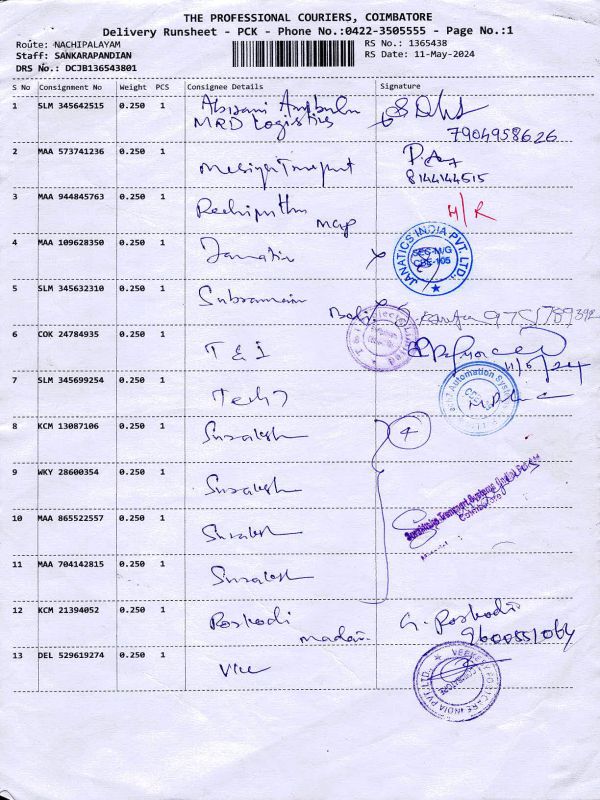 THE PROFESSIONAL COURIERS, COIMBATORE
Delivery Runsheet - PCK - Phone No.:0422-3505555 - Page No.:1
Route: NACHIPALAYAM
Staff: SANKARAPANDIAN
DRS No.: DCJB136543801
RS No.: 1365438
RS Date: 11-May-2024
S No Consignment No Weight PCS Consignee Details Signature
1 SLM 345642515 0.250 1
MRD Logistics
7904958626
2 MAA 573741236 0.250 1
8144144515
3 MAA 944845763 0.250 1 H/R
4 MAA 109628350 0.250 1
JANATICS INDIA PVT. LTD.,
5 SLM 345632310 0.250 1
6 COK 24784935 0.250 1 T & I
11/5/24
7 SLM 345699254 0.250 1 Tech 7
Automation
8 KCM 13087106 0.250 1 4
9 WKY 28600354 0.250 1
10 MAA 865522557 0.250 1
Coimbatore
11 MAA 704142815 0.250 1
12 KCM 21394052 0.250 1 Roshodi G. Roshodi
madai 9600551064
13 DEL 529619274 0.250 1
INDIA PVT. LTD.,